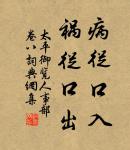 病從口入
禍從口出
太平御覧人事部
卷八詞典網集